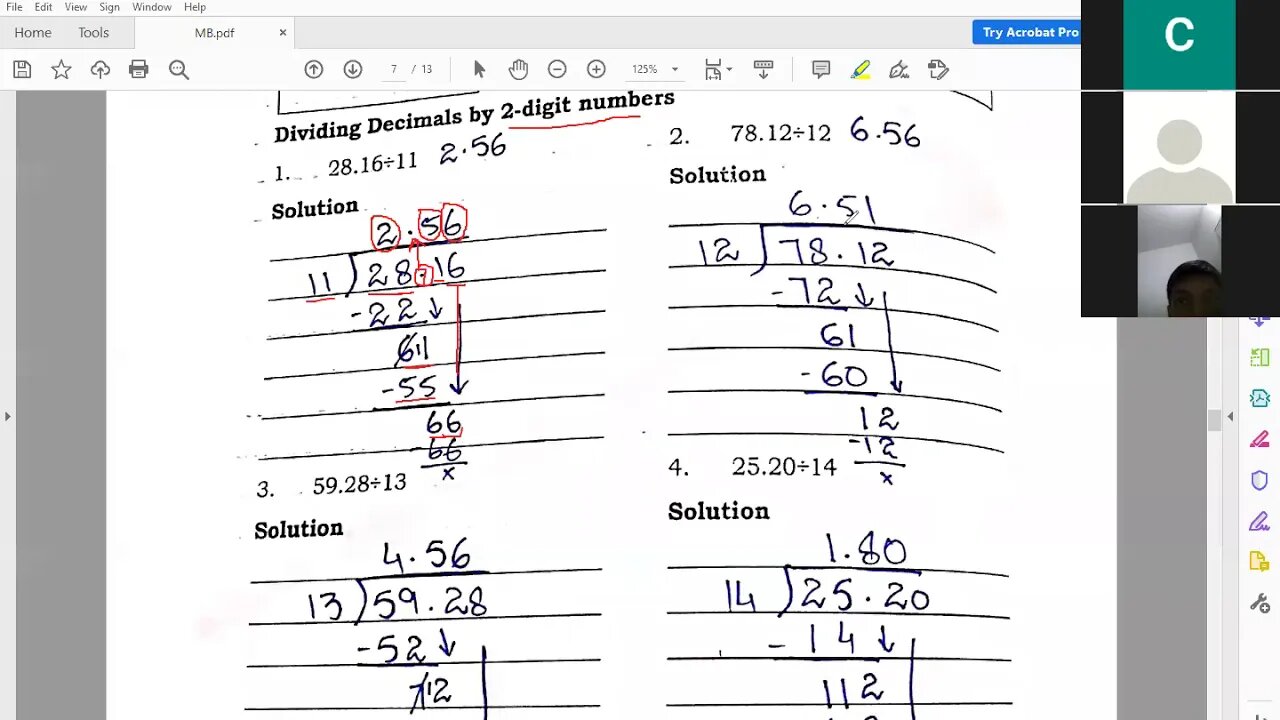 File Edit View Sign Window Help
Home Tools MB.pdf × Try Acrobat Pro
7 / 13 125%
C
Dividing Decimals by 2-digit numbers
1. 28.16÷11 2.56
Solution
2.56
11 28.16
-22
611
-55
66
-66
x
2. 78.12÷12 6.56
Solution
6.51
12 78.12
-72
61
-60
12
-12
x
3. 59.28÷13
Solution
4.56
13 59.28
-52
712
4. 25.20÷14
Solution
1.80
14 25.20
-14
112